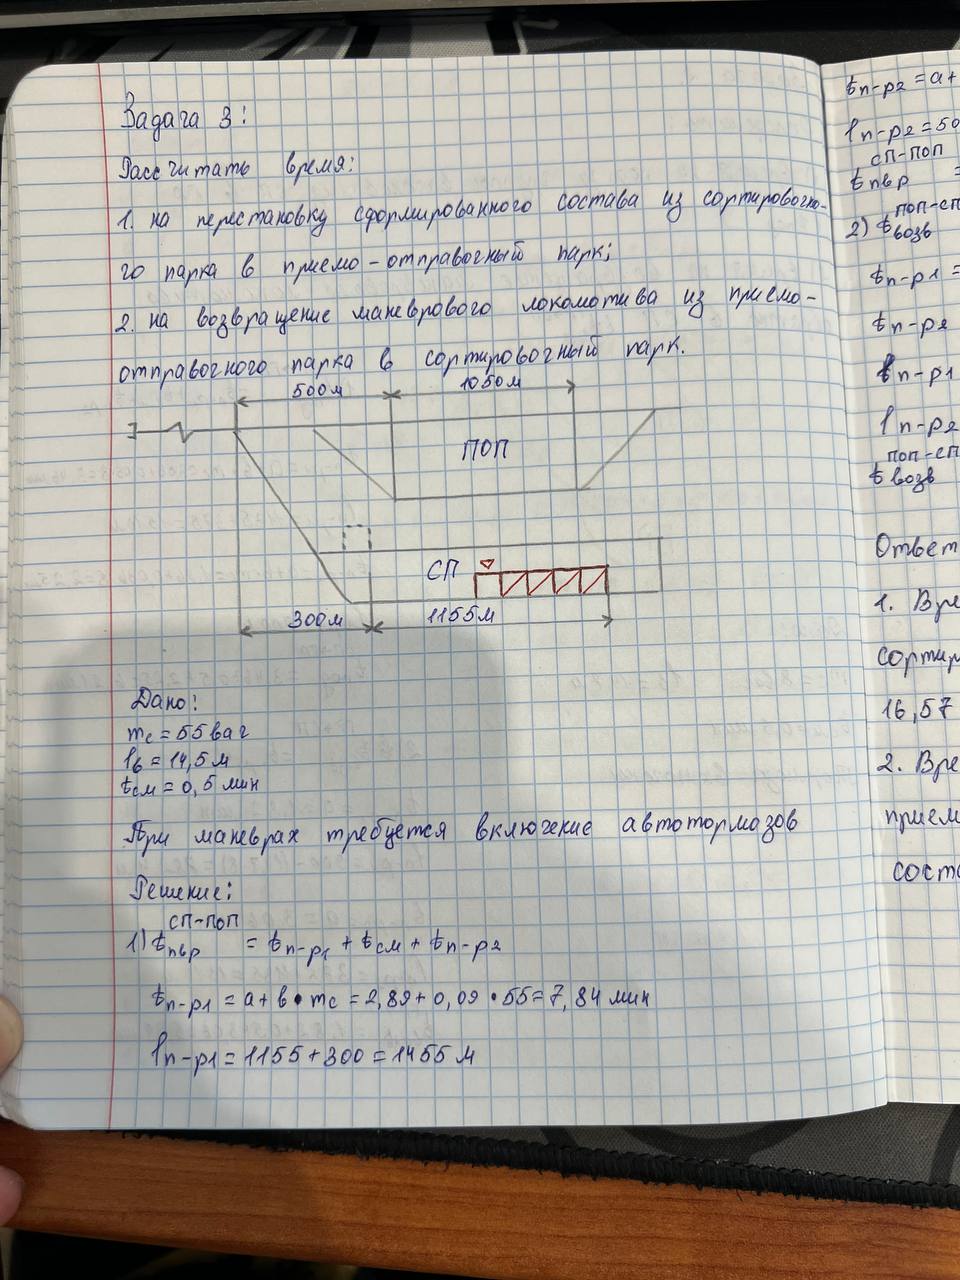 Задача 3:
Рассчитать время:
1. на перестановку сформированного состава из сортировочно-
го парка в приемо-отправочный парк;
2. на возвращение маневрового локомотива из приемо-
отправочного парка в сортировочный парк.
500м 1050м
ПОП
СП
300м 1155м
Дано:
mс = 55 ваг
lв = 14,5 м
tсм = 0,5 мин
При маневрах требуется включение автотормозов
Решение:
1) tпвр СП-ПОП = tп-р1 + tсм + tп-р2
tп-р1 = a + b • mс = 2,89 + 0,09 • 55 = 7,84 мин
lп-р1 = 1155 + 300 = 1455 м
tп-р2 = a +
lп-р2 = 50
СП-ПОП
tпвр =
2) tвозв ПОП-СП
tп-р1 =
tп-р2
tп-р1
lп-р2
ПОП-СП
tвозв
Ответ
1. Вре
сортир
16,57
2. Вре
прием
соста